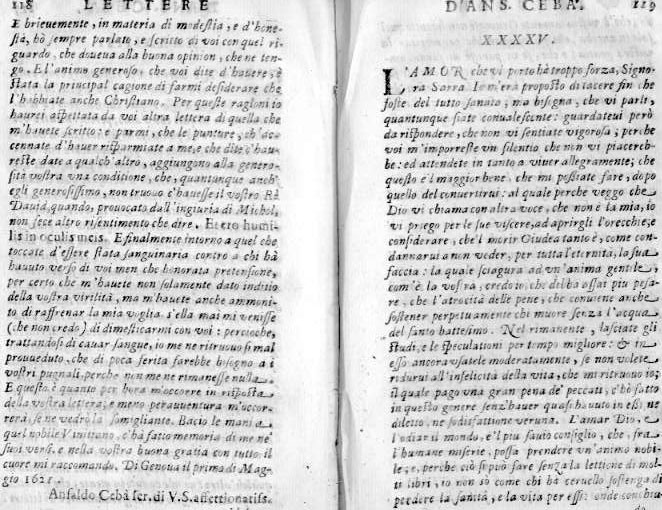 118 LETTERE
E brieuemente, in materia di modestia, e d'hone-
stà, hò sempre parlato, e scritto di voi con quel ri-
guardo, che doueua alla buona opinion, che ne ten-
go. E l'animo generoso, che voi dite d'hauere, è
stata la principal cagione di farmi desiderare che
l'habbiate anche Christiano. Per queste ragioni io
haurei aspettata da voi altra lettera di quella che
m'hauete scritto: e parmi, che le punture, ch'ac-
cennate d'hauer risparmiate a me, e che dite c'hau-
reste date a qualch'altro, aggiungono alla genero-
sità vostra vna conditione, che, quantunque anch'
egli generosissimo, non truouo c'hauesse il vostro Rè
Dauid, quando, prouocato dall'ingiuria di Michol,
non fece altro risentimento che dire, Et ero humi-
lis in oculis meis. E finalmente intorno a quel che
toccate d'essere stata sanguinaria contro a chi hà
hauuto verso di voi men che honorata pretensione,
per certo che m'hauete non solamente dato inditio
della vostra virilità, ma m'hauete anche ammoni-
to di raffrenar la mia voglia, s'ella mai mi venisse
(che non credo) di dimesticarmi con voi: percioche,
trattandosi di cauar sangue, io me ne ritruouo sì mal
proueduto, che di poca ferita farebbe bisogno a i
vostri pugnali, perche non me ne rimanesse nulla.
E questo è quanto per hora m'occorre in risposta
della vostra lettera; e meno perauuentura m'occor-
rerà, se ne vedrò la somigliante. Bacio le mani a
quel nobile Vinitiano, c'hà fatto memoria di me ne'
suoi versi, e nella vostra buona gratia con tutto il
cuore mi raccomando. Di Genoua il primo di Mag-
gio 1621.
Ansaldo Cebà ser. di V.S. affettionatiss.
D'ANS. CEBA'. 119
XXXXV.
L'AMOR che vi porto hà troppo forza, Signo-
ra Sarra. Io m'era proposto di tacere fin che
foste del tutto sanata, ma bisogna, che vi parli,
quantunque siate conualescente: guardateui però
da rispondere, che non vi sentiate vigorosa; perche
voi m'imporreste vn silentio, che non vi piacereb-
be: ed attendete in tanto a viuer allegramente; che
questo è 'l maggior bene, che mi possiate fare, dopo
quello del conuertirui: al quale perche veggo che
Dio vi chiama con altra voce, che non è la mia, io
vi priego per le sue viscere, ad aprirgli l'orecchie, e
considerare, che 'l morir Giudea tanto è, come con-
dannarui a non veder, per tutta l'eternità, la sua
faccia: la quale sciagura ad vn'anima gentile,
com'è la vostra, credo io, che debba assai più pesa-
re, che l'atrocità delle pene, che conuiene anche
sostener perpetuamente chi muore senza l'acqua
del santo battesimo. Nel rimanente, lasciate gli
studi, e le speculationi per tempo migliore: & in
esso ancora vsatele moderatamente, se non volete
ridurui all'infelicità della vita, che mi ritruouo io;
il quale pago vna gran pena de' peccati, c'hò fatto
in questo genere senz'hauer quasi hauuto in essi, nè
diletto, nè sodisfattione veruna. L'amar Dio, e
l'odiar il mondo, è 'l più sauio consiglio, che, fra
l'humane miserie, possa prendere vn'animo nobi-
le, e, perche ciò si può fare senza la lettione di mol-
ti libri, io non sò come chi hà ceruello sostenga di
perdere la sanità, e la vita per essi: onde conchiu-
do